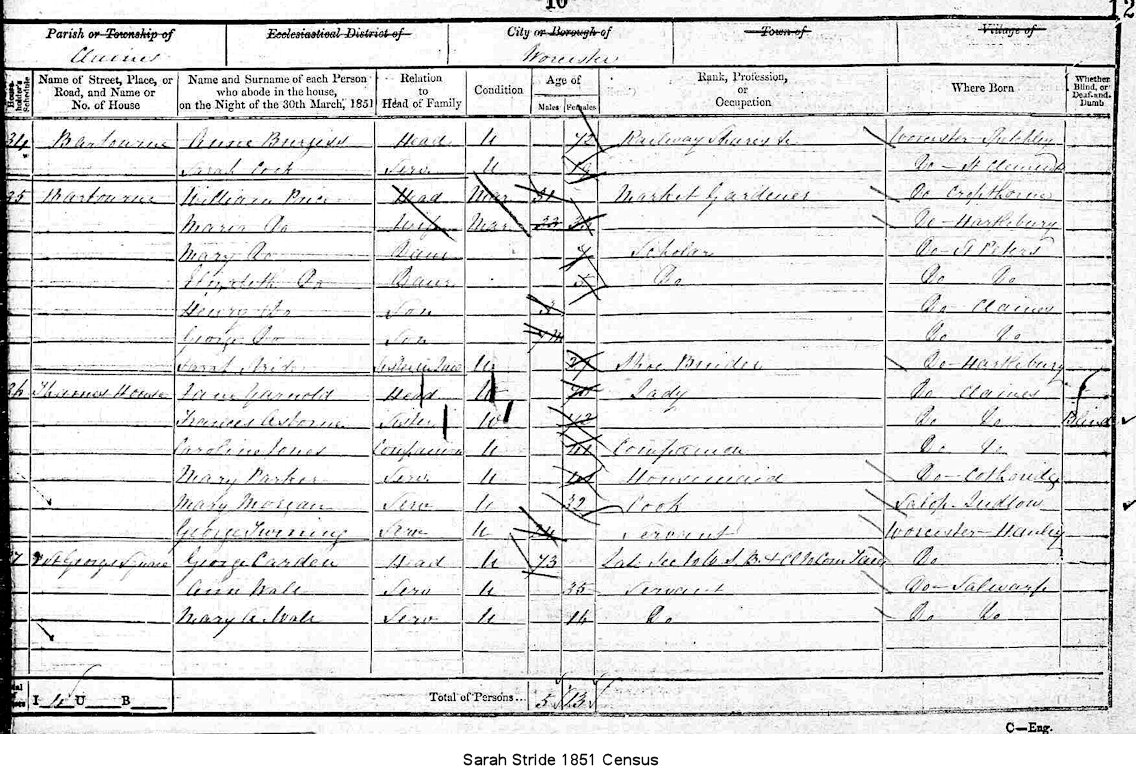 10
12
Parish or Township of Ecclesiastical District of City or Borough of Town of Village of
Claines Worcester
Name of Street, Place, or Road, and Name or No. of House
Name and Surname of each Person who abode in the house, on the Night of the 30th March, 1851
Relation to Head of Family
Condition
Age of
Males Females
Rank, Profession, or Occupation
Where Born
Whether Blind, or Deaf-and-Dumb
34 Barbourne Anne Burgess Head U 72 Railway Shares Worcester
Sarah Cook Serv U Do - St Clements
35 Barbourne William Price Head Mar Market Gardener Do Cropthorne
Maria Do Wife Mar 33 Do - Hartlebury
Mary Do Daur Scholar Do - St Peters
Elizabeth Do Daur 5 Do Do Do
Henry Do Son 3 Do Claines
George Do Son Do Do
Sarah Stride U 27 Shoe Binder Do - Hartlebury
36 Thames House Jane Garnold Head Lady Do Claines
Frances Osborne Sister W Do Do Blind
Caroline Jones Companion U Companion Do Do
Mary Parker Serv U Housemaid Do - Cotheridge
Mary Morgan Serv U 32 Cook Salop Ludlow
George Twinning Serv U Servant Worcester - Hanley
37 St George Square George Carden Head U 73 Do
Ann Wale Serv U 35 Servant Do - Salwarpe
Mary A Wale Serv U 16 Do Do Do
I 4 U B Total of Persons... 5 13
C—Eng.
Sarah Stride 1851 Census